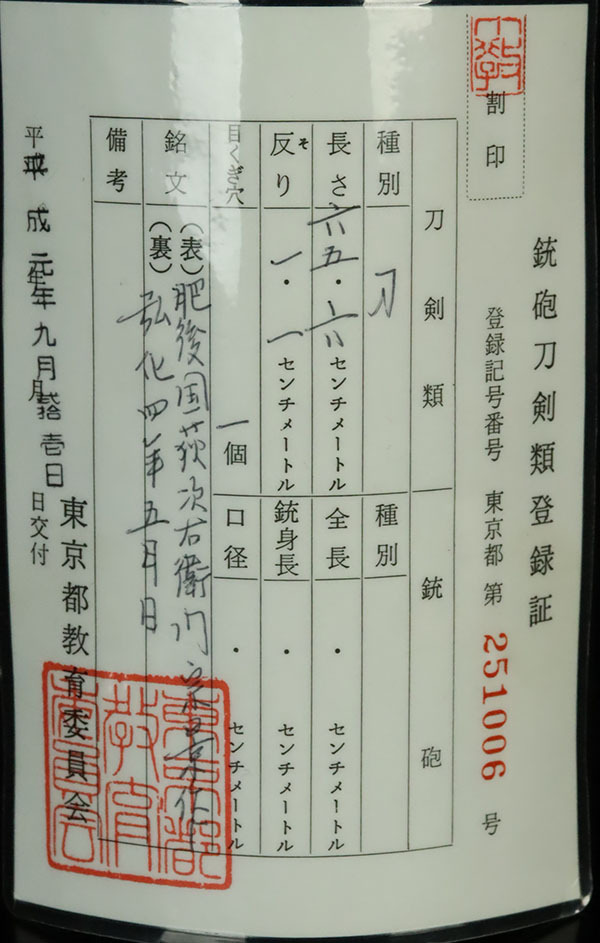 割印
銃砲刀剣類登録証
登録記号番号 東京都 第 251006 号
刀剣類
銃砲
種別 刀
種別
長さ 六五・六 センチメートル
全長 ・ センチメートル
反り そ 一・一 センチメートル
銃身長 ・ センチメートル
目くぎ穴 一個
口径 ・ センチメートル
銘文 (表) 肥後国荻次右衛門宗景作
(裏) 弘化四年五月日
備考
平成元年九月拾壱日
日交付
東京都教育委員会